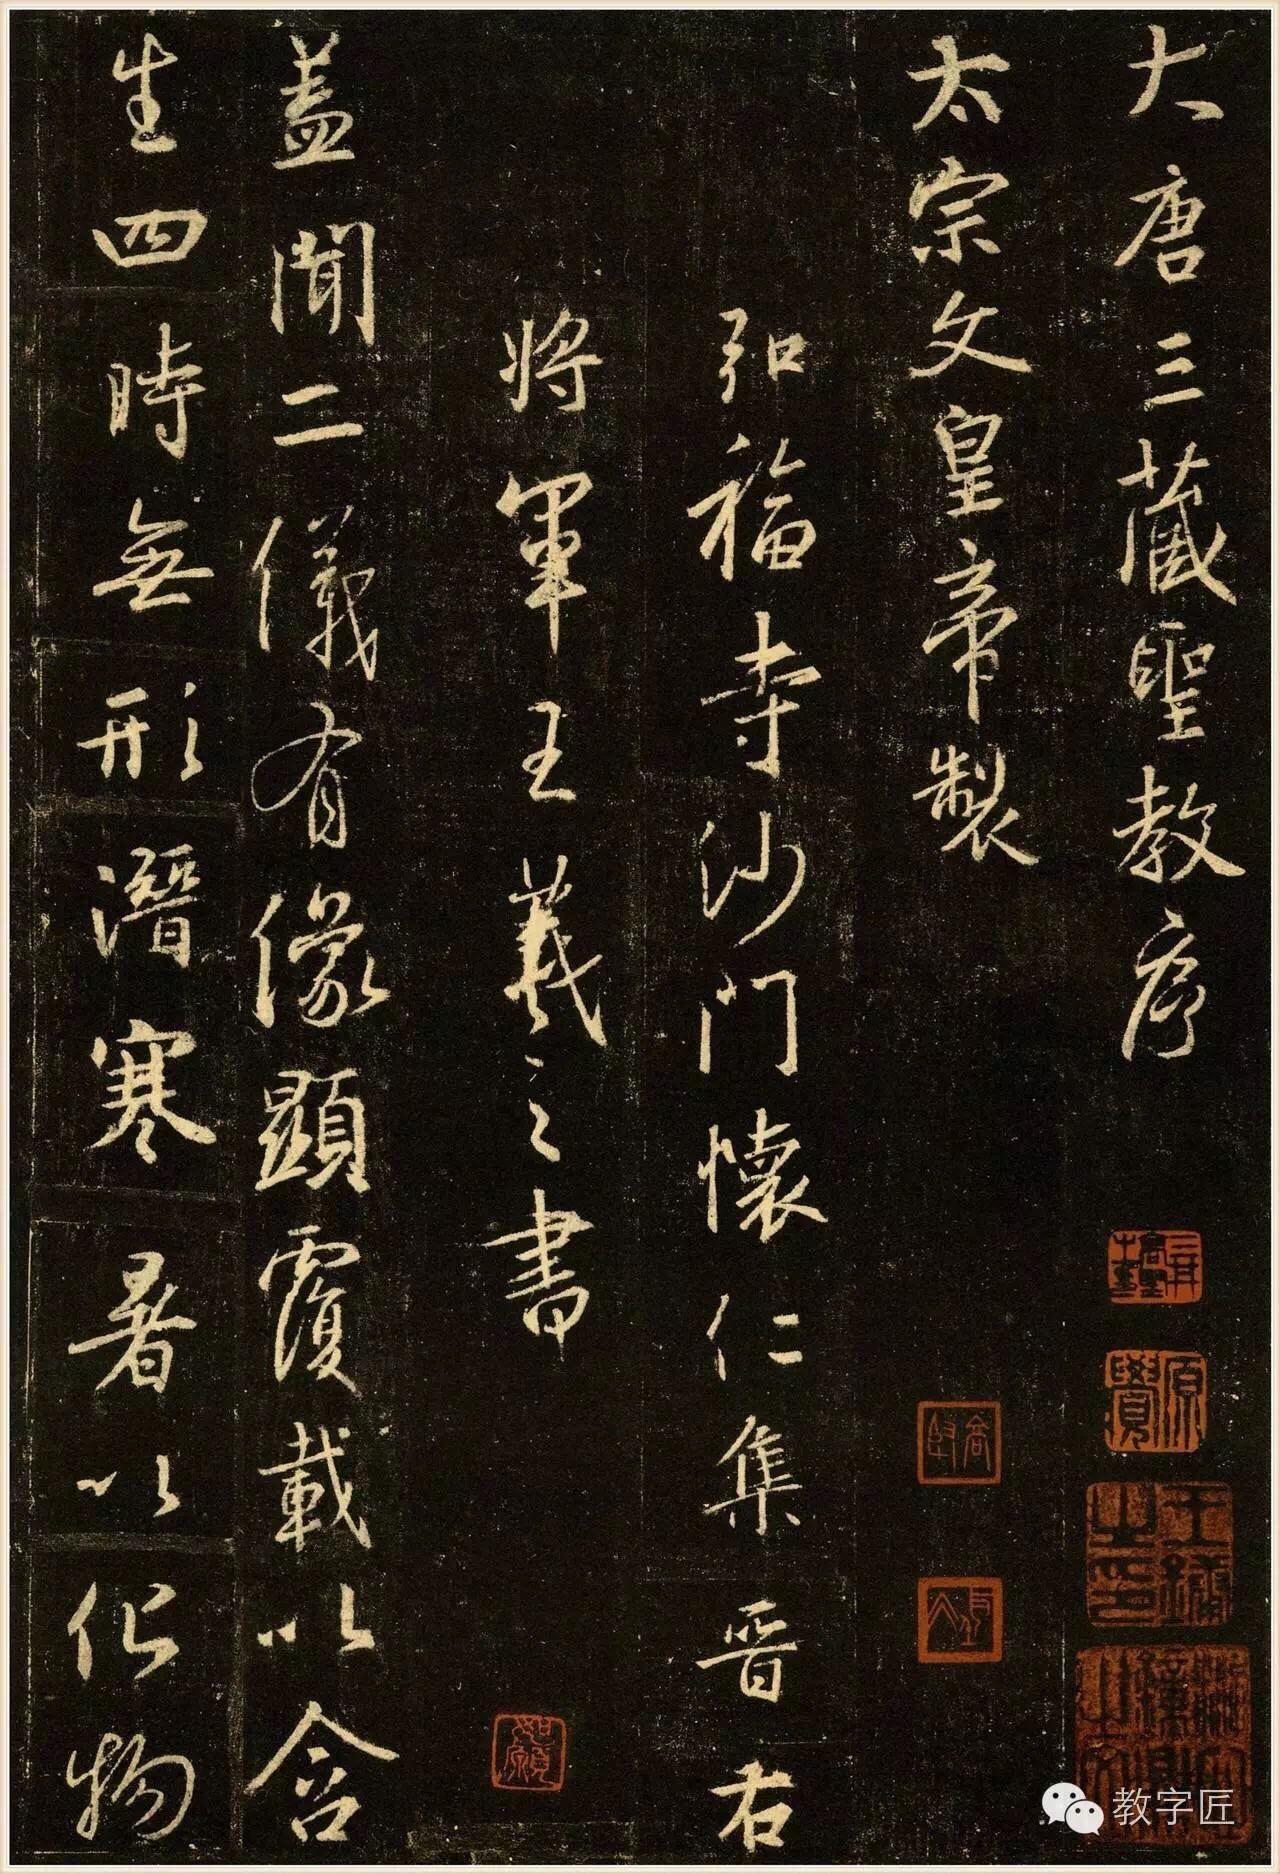 大唐三藏聖教序
太宗文皇帝製
弘福寺沙門懷仁集晉右
將軍王羲之書
蓋聞二儀有像顯覆載以含
生四時無形潛寒暑以化物
王鐸之印
如願
教字匠